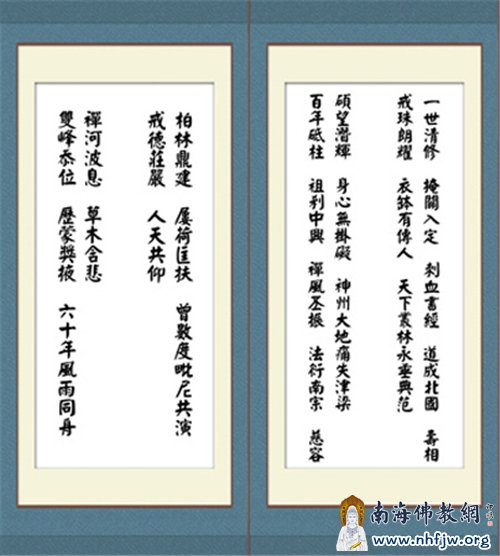 一世清修 掩關入定 刺血書經 道成北國 壽相
戒珠朗耀 衣鉢有傳人 天下叢林永垂典范
碩望潛輝 身心無掛礙 神州大地痛失津梁
百年砥柱 祖刹中興 禪風丕振 法衍南宗 慈容
柏林鼎建 屢荷匡扶 曾數度毗尼共演
戒德莊嚴 人天共仰
禪河波息 草木含悲
雙峰忝位 歷蒙獎掖 六十年風雨同舟
南海佛教網
www.nhfjw.org